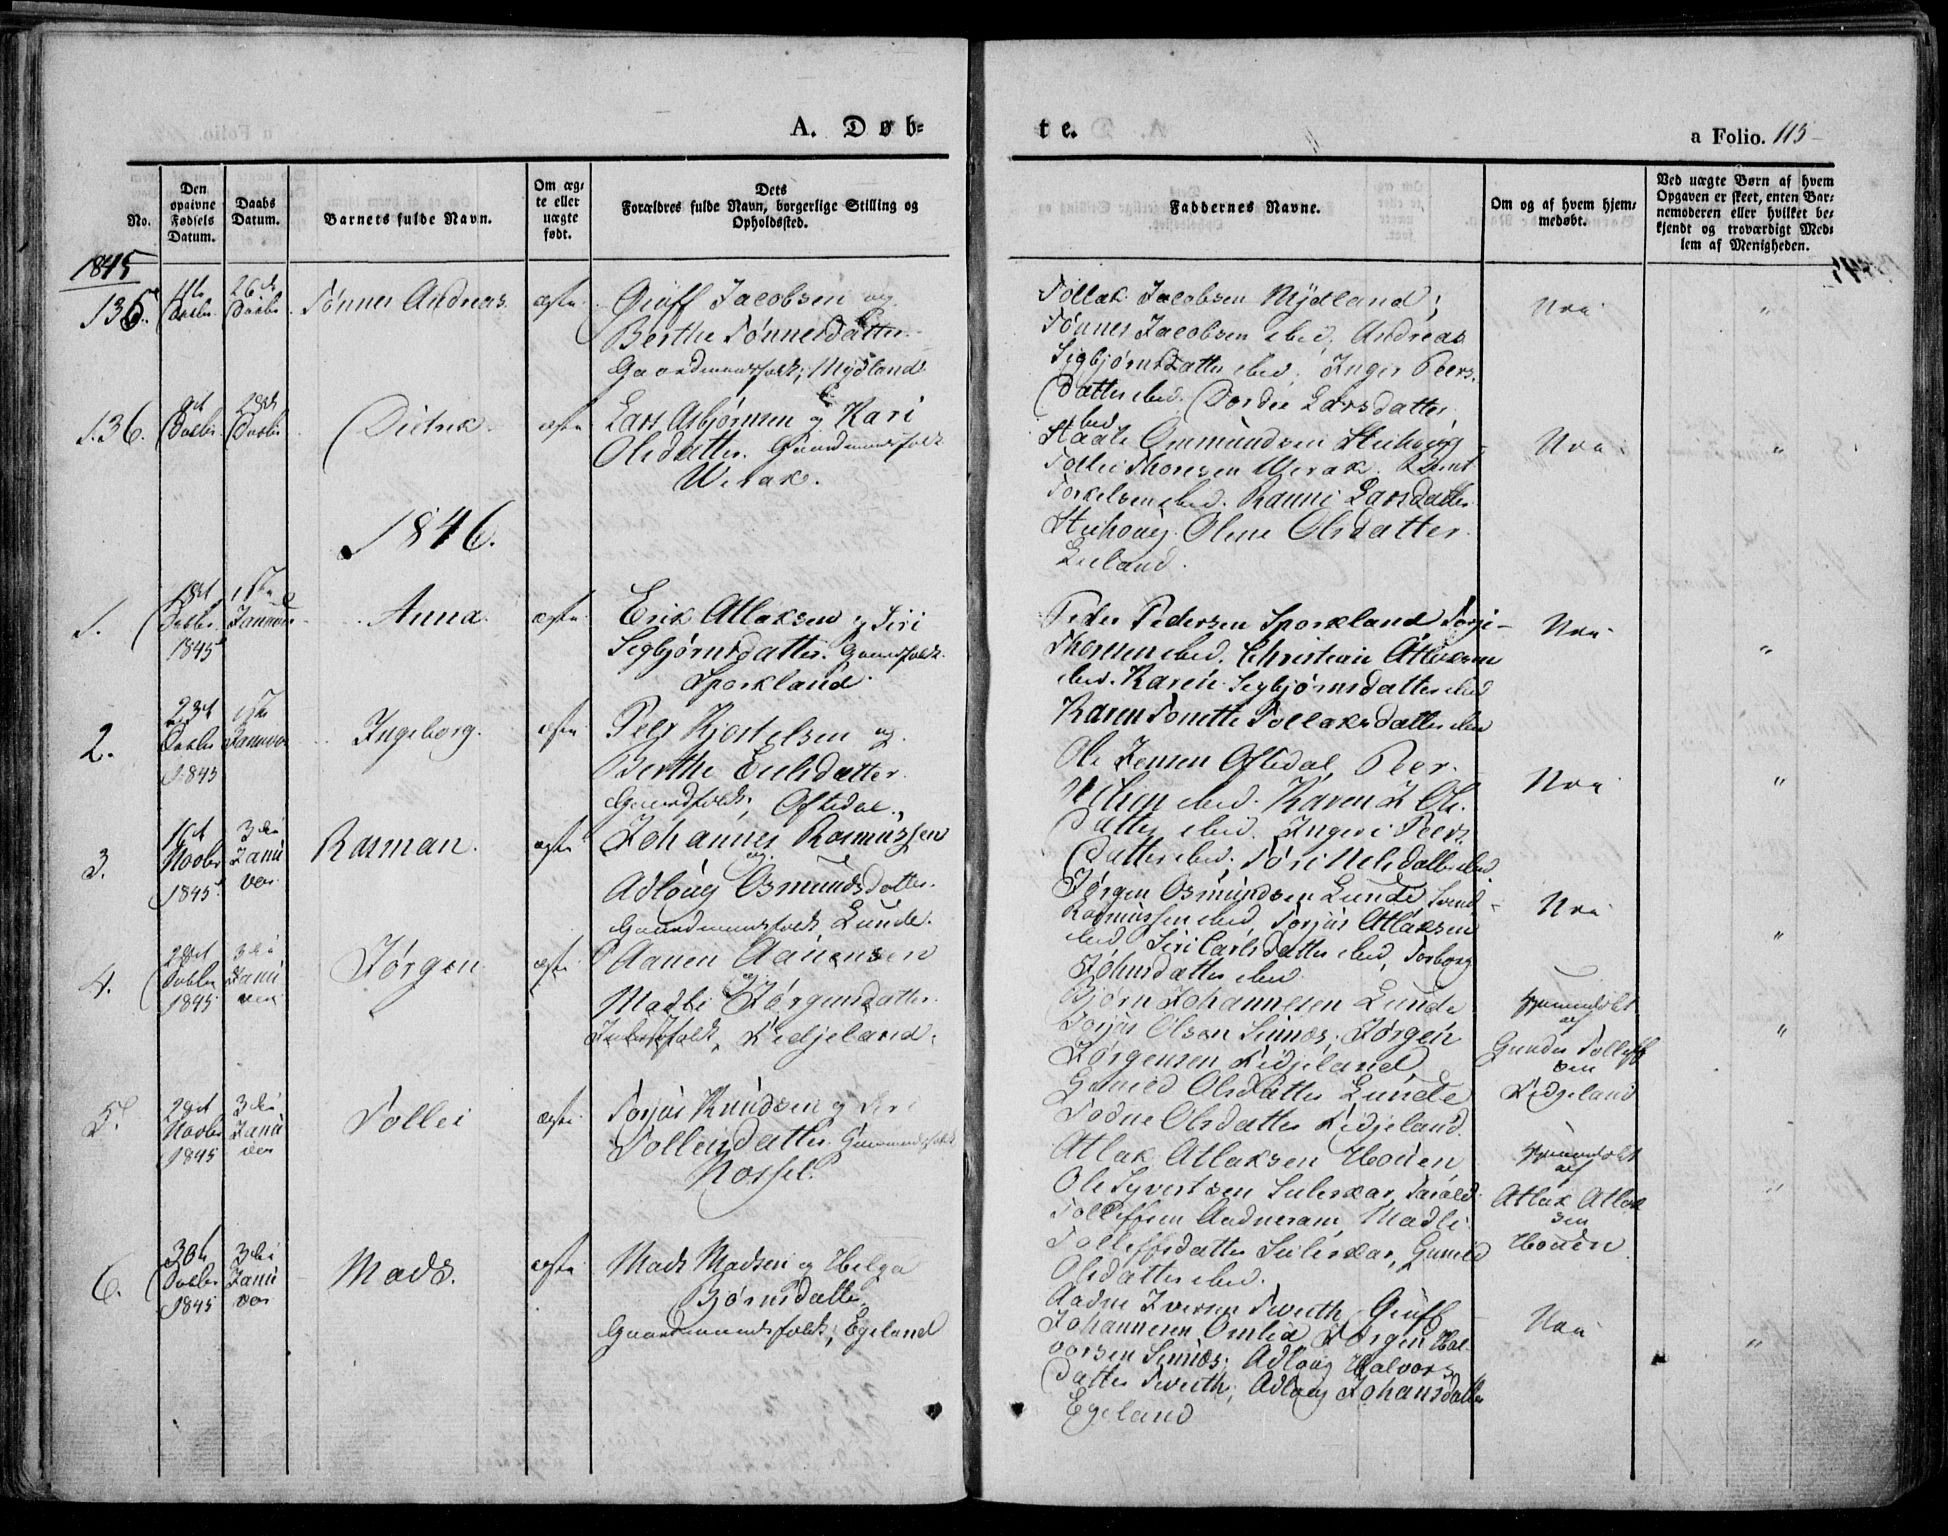 A. Døb-
te.
a Folio. 115
No.
Den
opgivne
Fødsels
Datum.
Daabs
Datum.
Barnets fulde Navn.
Om æg-
te eller
uægte
født.
Dets
Forældres fulde Navn, borgerlige Stilling og
Opholdssted.
Faddernes Navne.
Om og af hvem hjem-
medøbt.
Ved uægte Børn af hvem
Opgaven er skeet, enten Bar-
nemoderen eller hvilket be-
kjendt og troværdigt Med-
lem af Menigheden.
1845
135.
Decbr
26de
Decbr
Tønnes Andreas
ægte
Giüff Jacobsen og
Berthe Tønnesdatter
Gaardmandsfolk, Mydland
Tollak Jacobsen Mydland;
Tønnes Jacobsen ibid, Andreas
Sigbjørnsdatter ibid, Inger Peers-
datter ibid. Dordie Larsdatter
ibid
Nei
"
136.
Decbr
28de
Decbr
Didrik
ægte
Lars Asbjørnsen og Kari
Olsdatter. Gaardmandsfolk
Werak.
Staale Ommundsen
Tollei Thoresen Werak.
Torkelsen ibid. Ranni Larsdatter
Olene Olsdatter
Nei
"
1846.
1.
18de
Decbr
1845
1ste
Januar
Anna
ægte
Erik Atlaksen og Siri
Segbjørnsdatter. Gaardfolk
Sporkland
Peder Pedersen Sporkland Terje
Thoresen ibid. Christian Atlaksen
ibid. Karen Segbjørnsdatter ibid
Karen Tonette Tollaksdatter ibid
Nei
"
2.
23de
Decbr
1845
1ste
Januar
Ingeborg.
ægte
Peer Kjestelsen og
Berthe Eielsdatter
Gaardfolk, Oftedal.
Ole Jensen Oftedal, Peer
ibid. Karen J. Ols-
datter ibid. Ingeri Peers-
datter ibid. Nelsdatter ibid.
Nei
"
3.
16de
Novbr
1845
3die
Janu
var
Rasman.
ægte
Johannes Rasmussen
og
Adloug Osmundsdatter
Gaardmandsfolk, Lunde.
Jørgen Osmundsen Lunde, Svend
Rasmussen ibid, Torjus Atlaksen
ibid Siri Carlsdatter ibid, Torborg
Johnsdatter ibid
Nei
"
4.
Decbr
1845
3die
Janu
var
Jørgen
ægte
Aanen Aanensen
og
Madli Jørgensdatter
Inderstfolk, Kidjeland.
Bjørn Johannesen Lunde
Torjus Olsen Sinnes, Jørgen
Jørgensen Kidjeland
Gunild Olsdatter Lunde
Todne Olsdatter Kidjeland.
hjemmedøbt
af
Gunder Tollefs
sen
Kidjeland
"
5.
29de
Novbr
1845
3die
Janu
var
Tollei
ægte
Torjus Knudsen og Siri
Tolleivsdatter. Gaardmandsfolk
Atlak Atlaksen Houen,
Ole Syvertsen Suleskar, Tarald
Tolleffsen Aadneram, Madli
Tolleffsdatter Suleskar, Gunild
Olsdatter ibid.
hjemmedøbt
af
Atlak Atlak
sen
Houen
"
6.
30te
Decbr
1845
3die
Janu
var
Mads.
ægte
Mads Madsen og Helga
Bjørnsdatter
Gaardmandsfolk, Egeland
Aadne Iversen Tveith, Giüff
Johannesen Omlid, Jørgen Hal-
vorsen Sinnes; Adloug Halvors-
datter Tveith, Adloug Johansdatter
Egeland
Nei
"